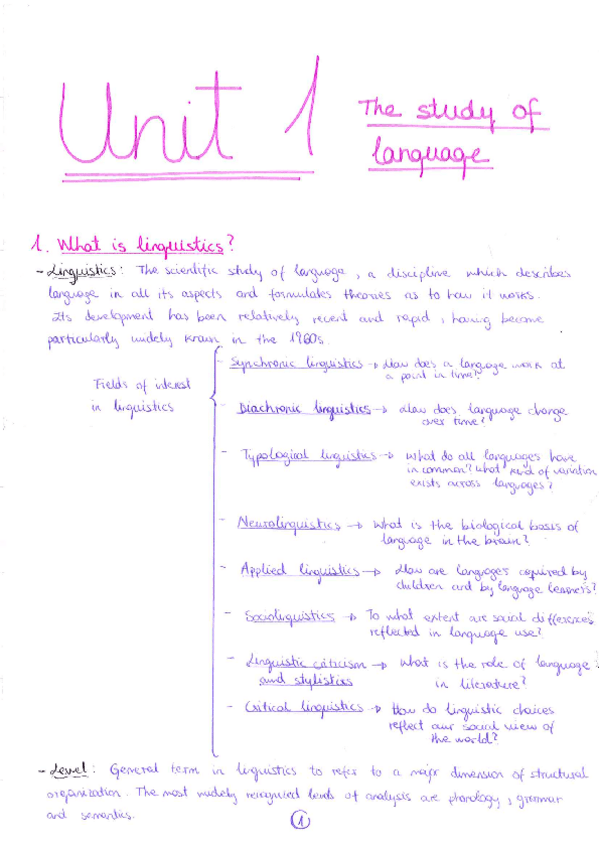 Unit 1
The study of
language
1. What is linguistics?
- Linguistics: The scientific study of language, a discipline which describes
language in all its aspects and formulates theories as to how it works.
Its development has been relatively recent and rapid, having become
particularly widely known in the 1960s.
Fields of interest
in linguistics
- Synchronic linguistics → How does a language work at
a point in time?
- Diachronic linguistics → How does language change
over time?
- Typological linguistics → What do all languages have
in common? What kind of variation
exists across languages?
- Neurolinguistics → What is the biological basis of
language in the brain?
- Applied linguistics → How are languages acquired by
children and by language learners?
- Sociolinguistics → To what extent are social differences
reflected in language use?
- Linguistic criticism → What is the role of language
and stylistics in literature?
- Critical linguistics → How do linguistic choices
reflect our social view of
the world?
- Level: General term in linguistics to refer to a major dimension of structural
organization. The most widely recognized levels of analysis are phonology, grammar
and semantics.
1